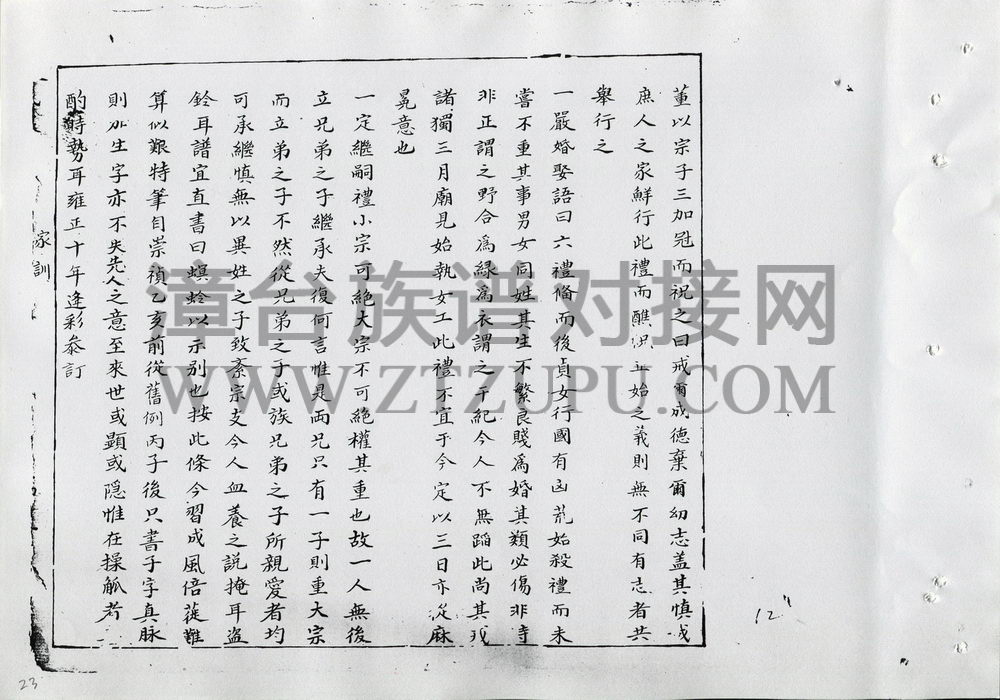 董以宗子三加冠而祝之曰戒爾成德棄爾幼志盖其慎成
庶人之家鮮行此禮而醮
始之義則無不同有志者共
舉行之
一嚴婚娶語曰六禮俻而後貞女行國有凶荒始殺禮而未
嘗不重其事男女同姓其生不繁良賤為婚其類必傷非時
非正謂之野合為緑為衣謂之干紀今人不無蹈此尚其戒
諸獨三月廟見始執女工此禮不宜于今定以三日亦從麻
冕意也
一定繼嗣禮小宗可絶大宗不可絶權其重也故一人無後
立兄弟之子繼承夫復何言惟是両兄只有一子則重大宗
而立弟之子不然從兄弟之子或族兄弟之子所親愛者均
可承繼慎無以異姓之子致紊宗支今人血養之説掩耳盗
鈴耳譜宜直書曰螟蛉以示别也按此條今習成風倍蓰難
算似艱特筆自崇禎乙亥前從舊例丙子後只書子字真脉
則加生字亦不失先人之意至來世或顯或隠惟在操觚者
酌時勢耳雍正十年逢彩叅訂
家訓
12"
23
漳台族谱对接网
WWW.ZTZUPU.COM